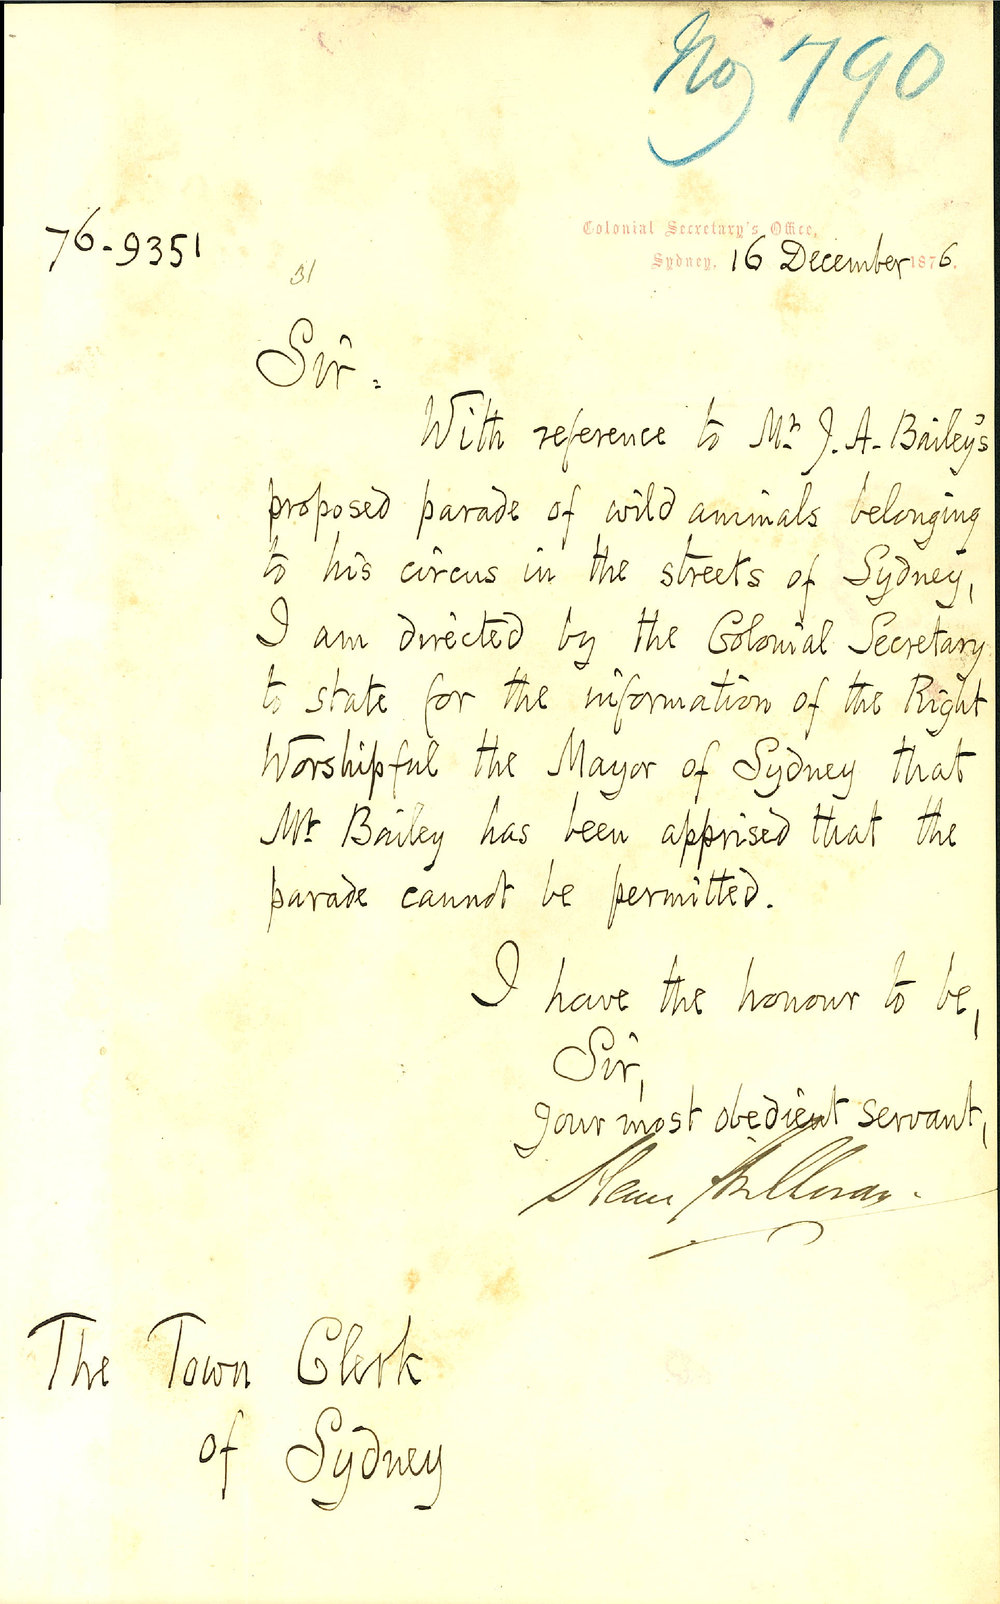 No 790
76-9351
31
Colonial Secretary's Office,
Sydney, 16 December 1876.
Sir,
With reference to Mr J. A. Bailey's
proposed parade of wild animals belonging
to his circus in the streets of Sydney,
I am directed by the Colonial Secretary
to state for the information of the Right
Worshipful the Mayor of Sydney that
Mr Bailey has been apprised that the
parade cannot be permitted.
I have the honour to be,
Sir,
your most obedient servant,
The Town Clerk
of Sydney